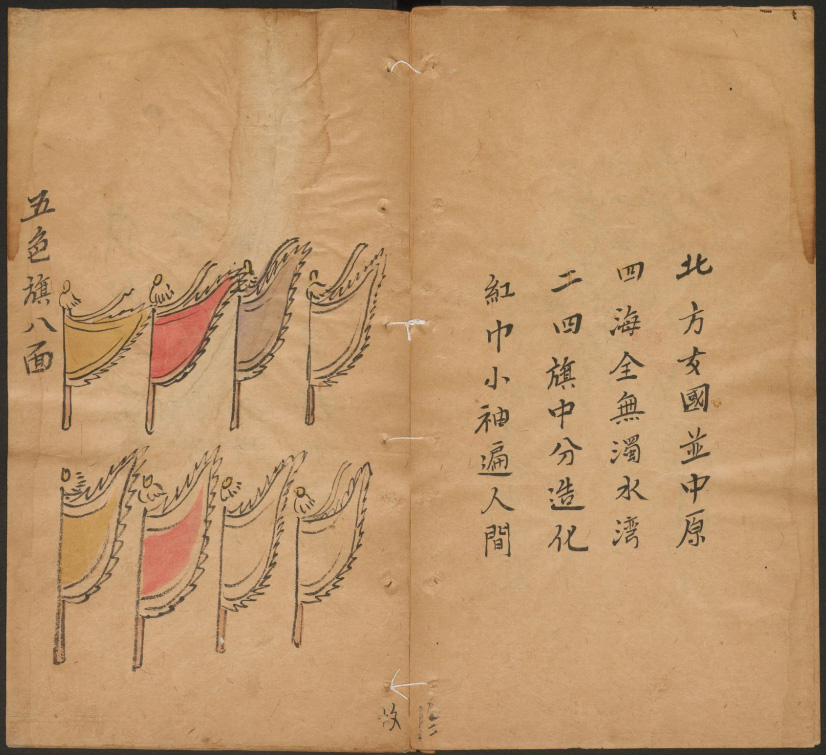 北方女國並中原
四海全無濁水湾
二四旗中分造化
紅巾小袖遍人間
五色旗八面